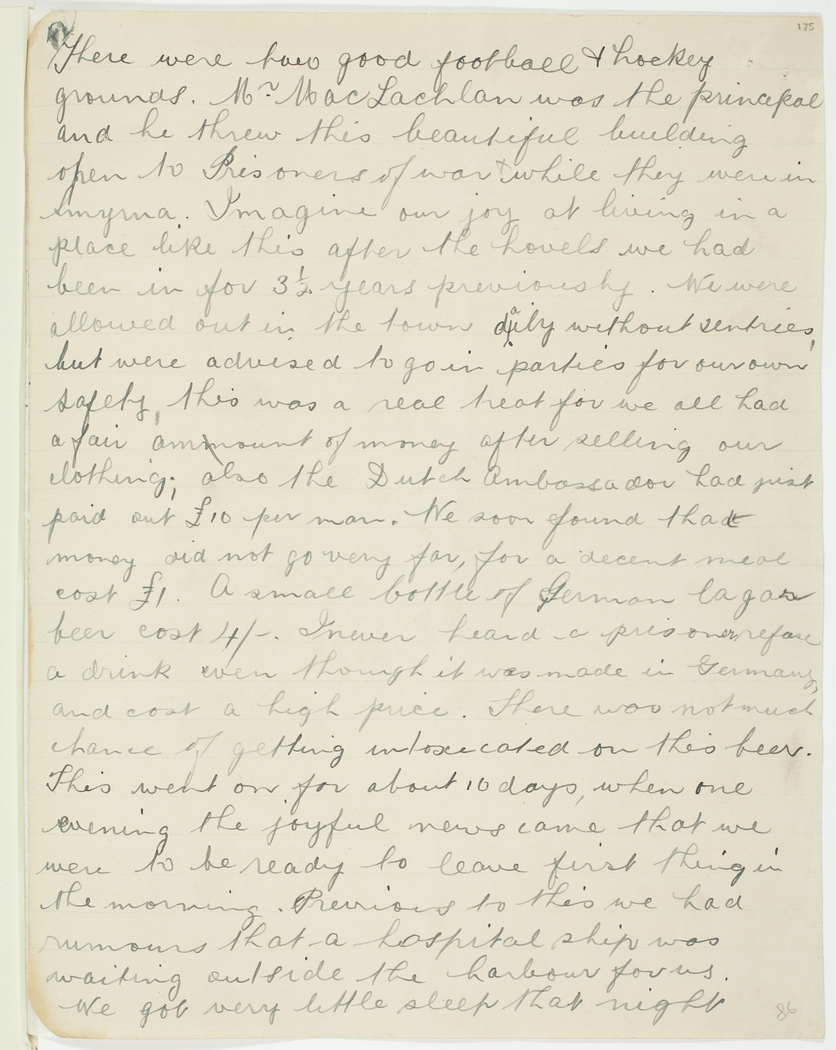 175
There were two good football & hockey
grounds. Mr. MacLachlan was the principal
and he threw this beautiful building
open to Prisoners of war while they were in
Smyrna. Imagine our joy at living in a
place like this after the hovels we had
been in for 3½ years previously. We were
allowed out in the town daily without sentries,
but were advised to go in parties for our own
safety, this was a real treat for we all had
a fair ammount of money after selling our
clothing; also the Dutch Ambassador had just
paid out £10 per man. We soon found that
money did not go very far, for a decent meal
cost £1. A small bottle of German lagar
beer cost 4/-. I never heard a prisoner refuse
a drink even though it was made in Germany,
and cost a high price. There was not much
chance of getting intoxecated on this beer.
This went on for about 10 days, when one
evening the joyful news came that we
were to be ready to leave first thing in
the morning. Previous to this we had
rumours that a hospital ship was
waiting outside the harbour for us.
We got very little sleep that night
86